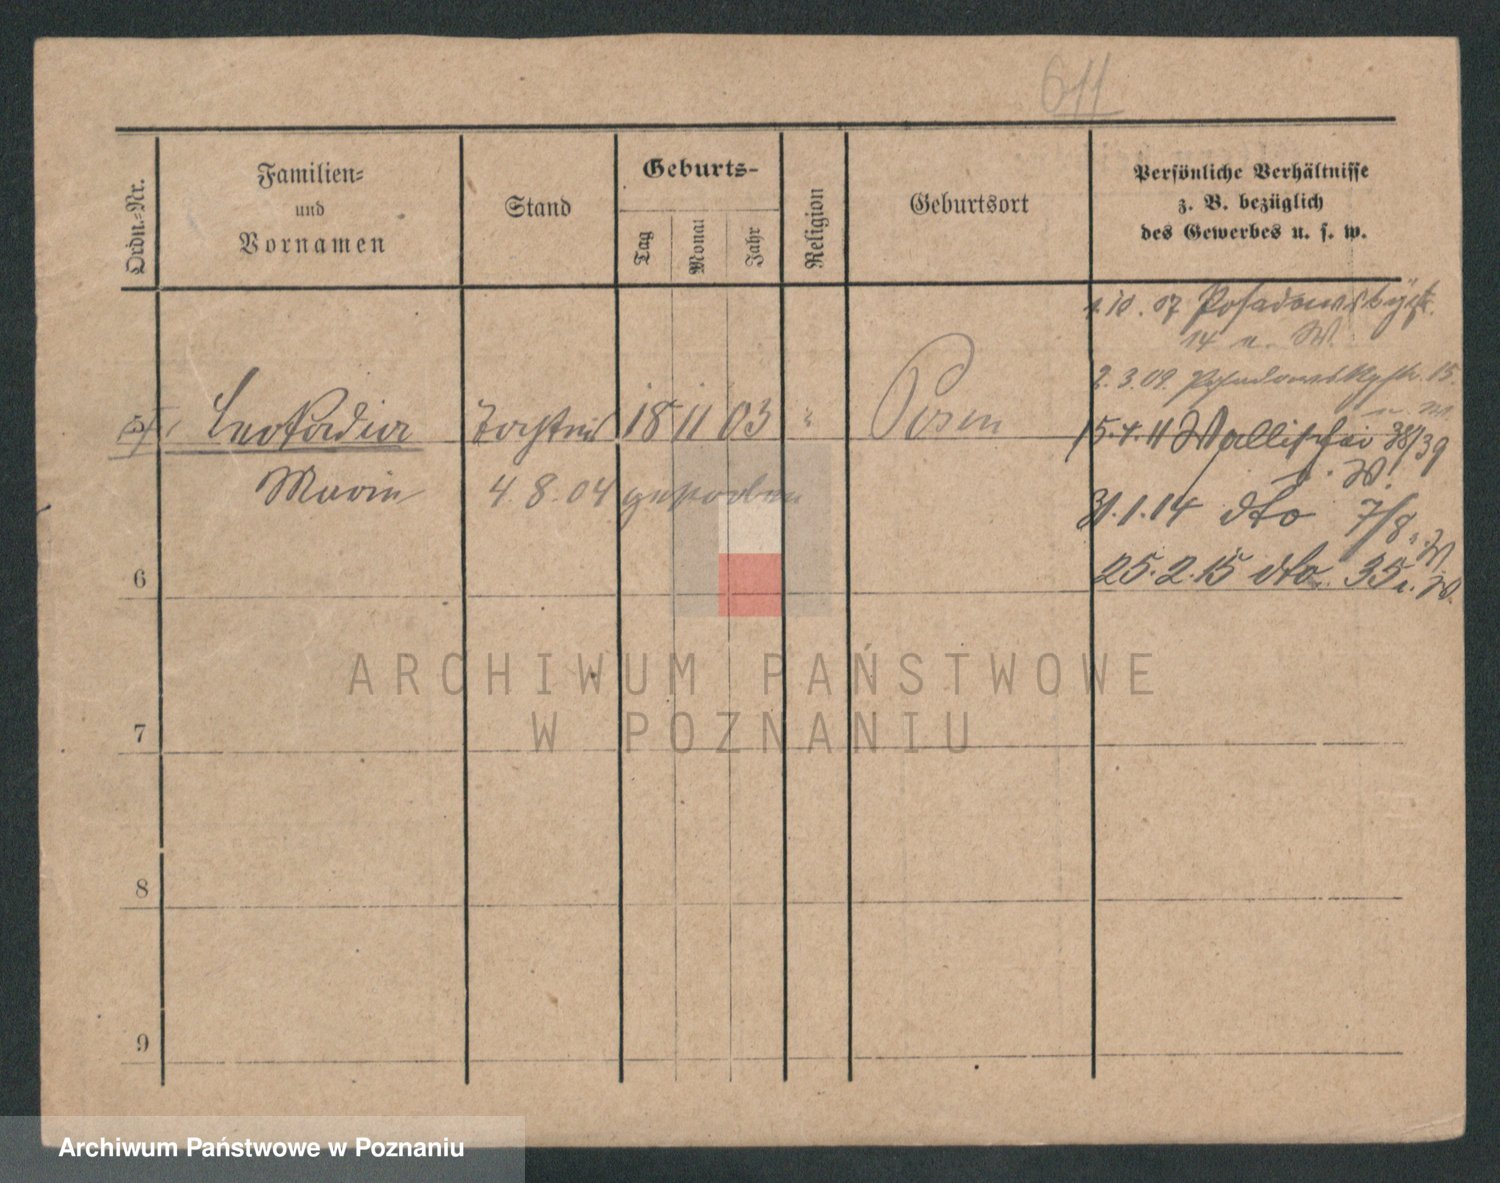 611
Ordn.-Nr.
Familien-
und
Vornamen
Stand
Geburts-
Tag
Monat
Jahr
Religion
Geburtsort
Persönliche Verhältnisse
z. B. bezüglich
des Gewerbes u. s. w.
1.10.07 Posadowskystr.
14 u. W.
2.3.09. Posadowskystr. 15.
u. W.
5 Leokadia Tochter 18 11 03 " Posen
15.4.11 Wallischei 38/39
u. W.
Marie 4.8.04 gestorben
31.1.14 dto 7/8 u. W
6
25.2.15 dto. 35 u. W.
ARCHIWUM PAŃSTWOWE
W POZNANIU
7
8
9
Archiwum Państwowe w Poznaniu